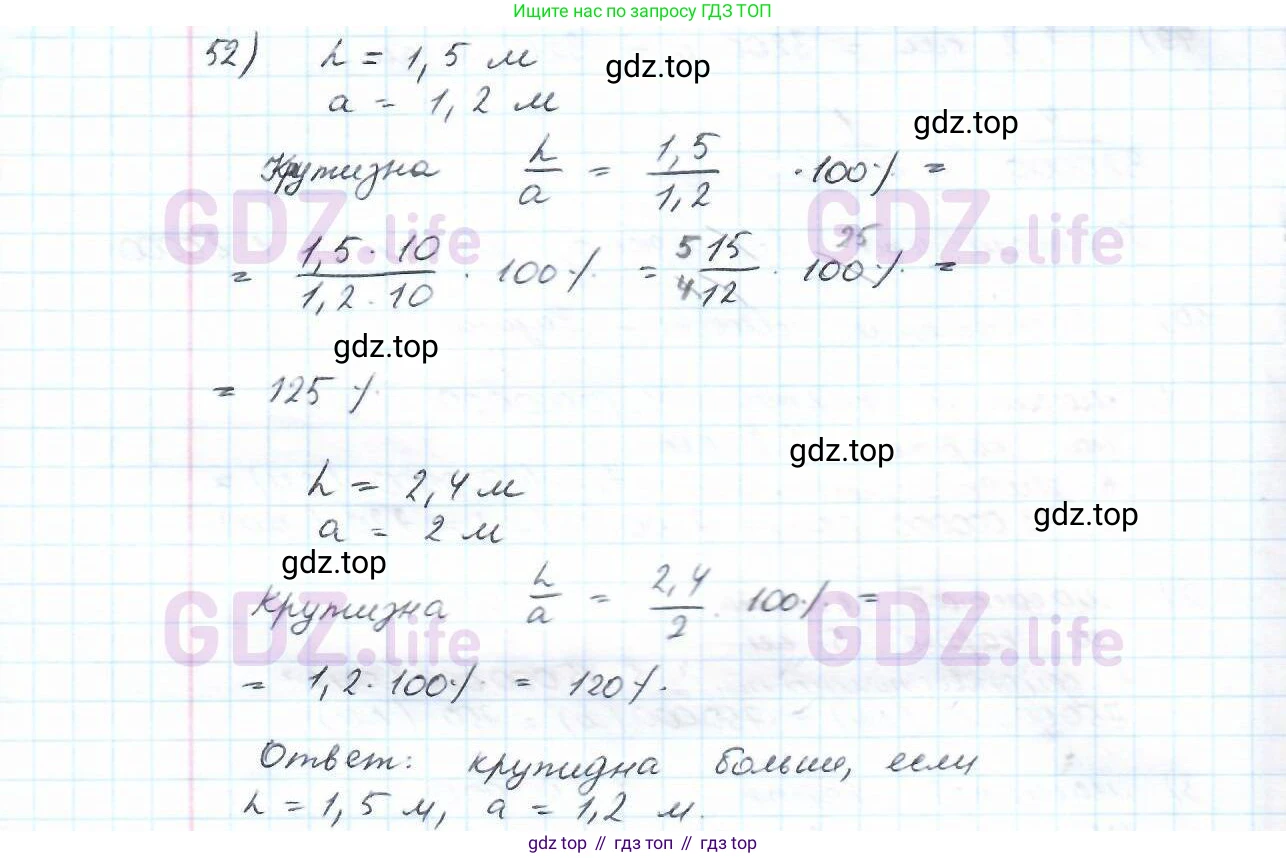 Ищите нас по запросу ГДЗ ТОП
52) h = 1,5 м
gdz.top
a = 1,2 м
gdz.top
Крутизна h/a = 1,5/1,2 · 100% =
GDZ.life GDZ.life
= 1,5 · 10/1,2 · 10 · 100% = 5 15/4 12 · 25 100% =
gdz.top
= 125 %
gdz.top
h = 2,4 м
gdz.top
a = 2 м
gdz.top
Крутизна h/a = 2,4/2 · 100% =
GDZ.life GDZ.life
= 1,2 · 100% = 120%.
Ответ: крутидна больше, если
h = 1,5 м, a = 1,2 м.
gdz top // гдз топ // gdz top